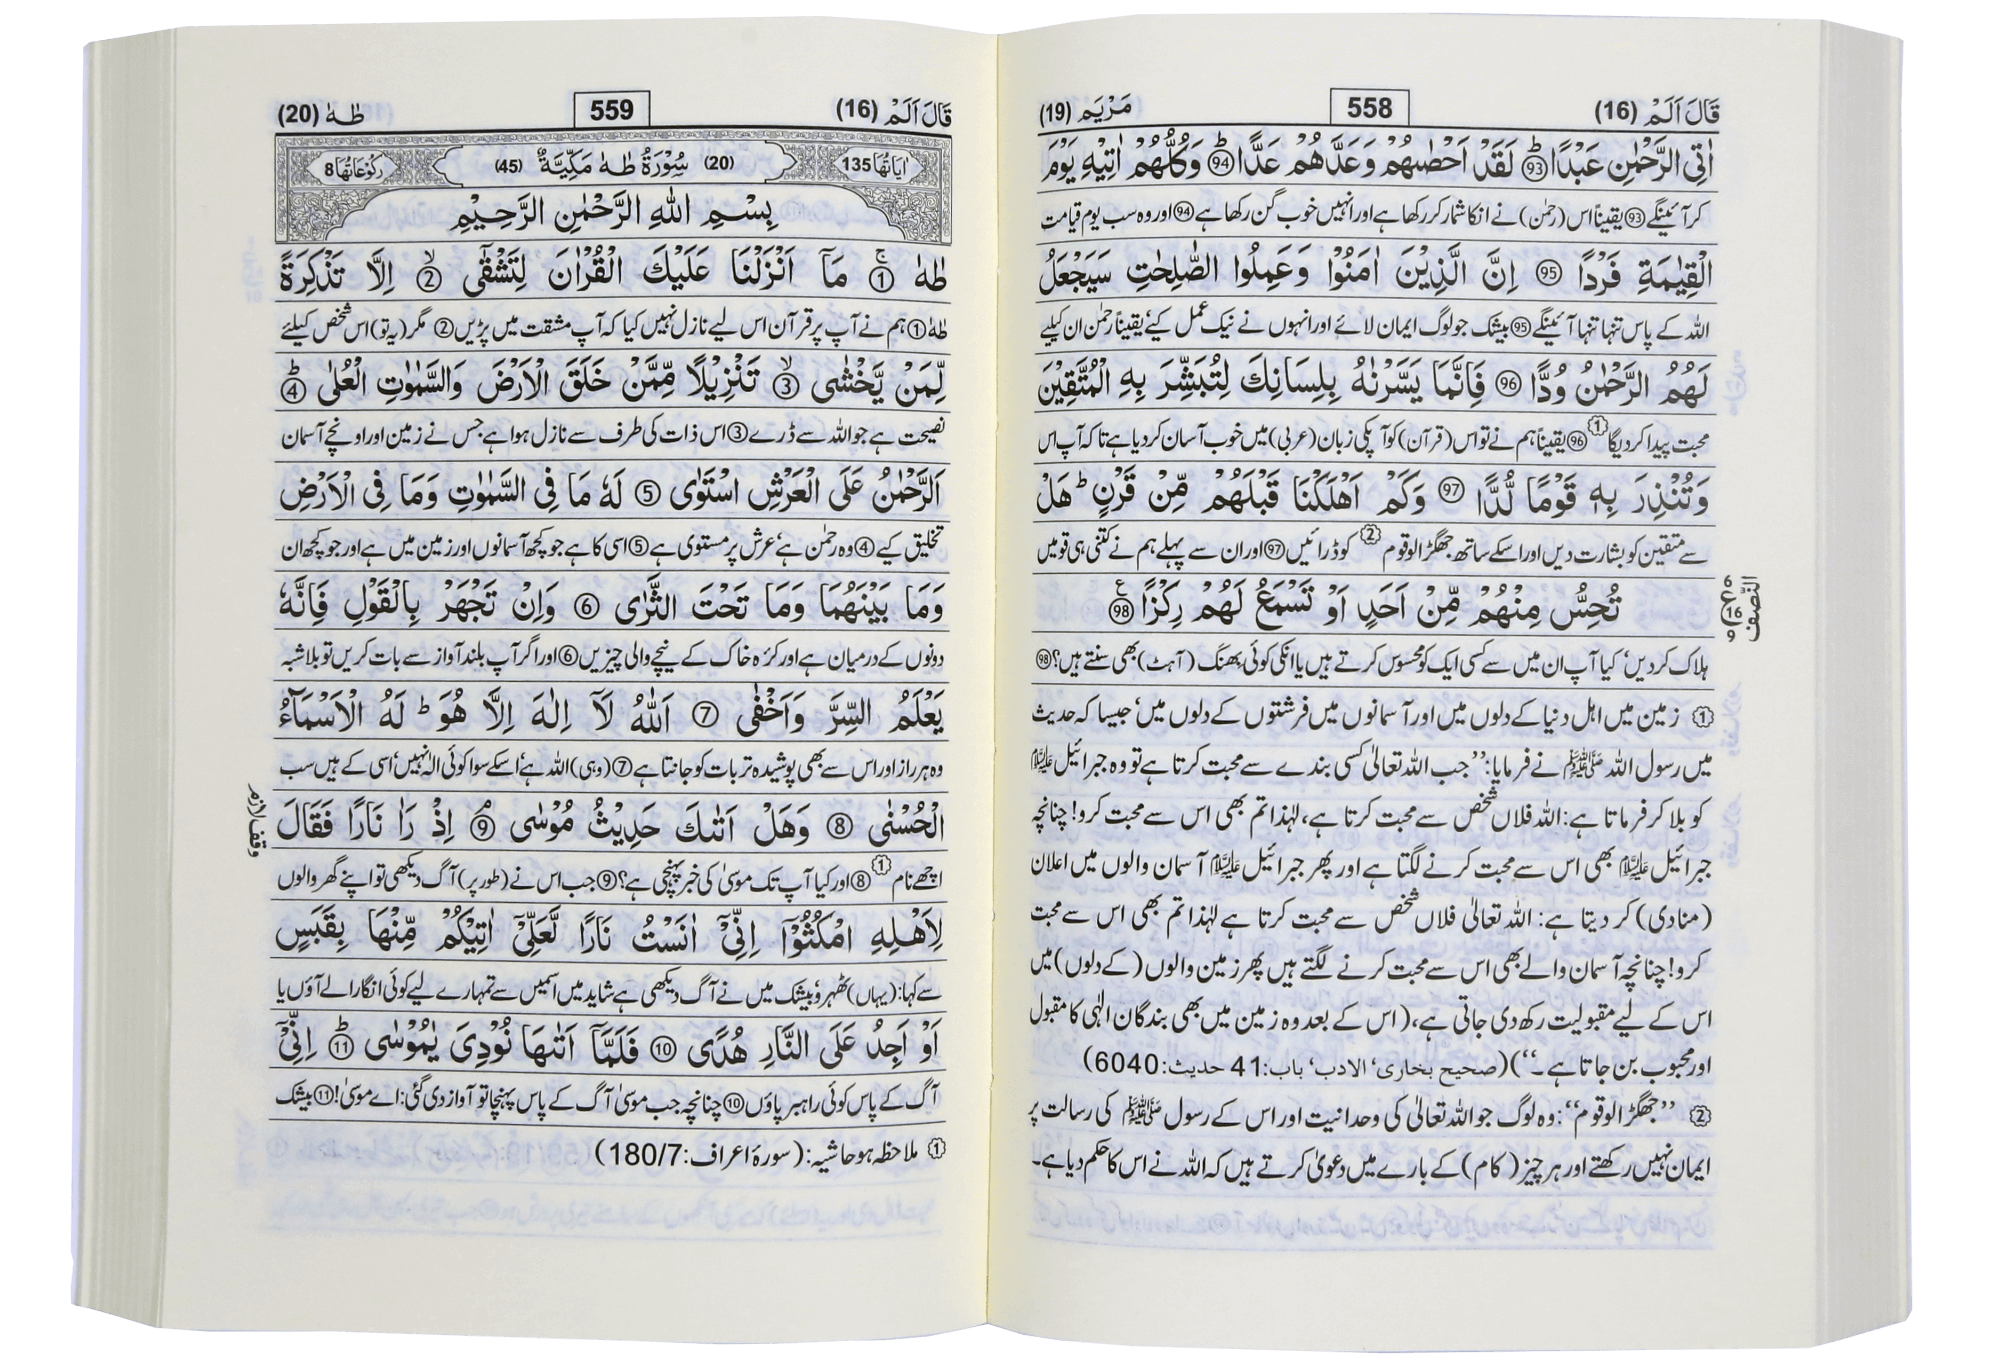 قَالَ اَلَمْ (16)
558
مَرْيَم (19)
اٰتِى الرَّحْمٰنِ عَبْدًا ﴿93﴾ لَقَدْ اَحْصٰىهُمْ وَعَدَّهُمْ عَدًّا ﴿94﴾ وَكُلُّهُمْ اٰتِيْهِ يَوْمَ
کر آئینگے ﴿93﴾ یقیناً اس (رحمٰن) نے انکا شمار کر رکھا ہے اور انہیں خوب گن رکھا ہے ﴿94﴾ اور وہ سب یوم قیامت
الْقِيٰمَةِ فَرْدًا ﴿95﴾ اِنَّ الَّذِيْنَ اٰمَنُوْا وَعَمِلُوا الصّٰلِحٰتِ سَيَجْعَلُ
اللہ کے پاس تنہا تنہا آئینگے ﴿95﴾ بیشک جو لوگ ایمان لائے اور انہوں نے نیک عمل کیے‘ یقیناً رحمٰن ان کیلیے
لَهُمُ الرَّحْمٰنُ وُدًّا ﴿96﴾ فَاِنَّمَا يَسَّرْنٰهُ بِلِسَانِكَ لِتُبَشِّرَ بِهِ الْمُتَّقِيْنَ
محبت پیدا کر دیگا ① ﴿96﴾ یقیناً ہم نے تو اس (قرآن) کو آپکی زبان (عربی) میں خوب آسان کر دیا ہے تاکہ آپ اس
وَتُنْذِرَ بِهٖ قَوْمًا لُّدًّا ﴿97﴾ وَكَمْ اَهْلَكْنَا قَبْلَهُمْ مِّنْ قَرْنٍ ؕ هَلْ
سے متقین کو بشارت دیں اور اسکے ساتھ جھگڑالو قوم ② کو ڈرائیں ﴿97﴾ اور ان سے پہلے ہم نے کتنی ہی قومیں
تُحِسُّ مِنْهُمْ مِّنْ اَحَدٍ اَوْ تَسْمَعُ لَهُمْ رِكْزًا ﴿98﴾
النّصف
ع
6
16
9
ہلاک کر دیں‘ کیا آپ ان میں سے کسی ایک کو محسوس کرتے ہیں یا انکی کوئی بھنگ (آہٹ) بھی سنتے ہیں؟ ﴿98﴾
① زمین میں اہل دنیا کے دلوں میں اور آسمانوں میں فرشتوں کے دلوں میں‘ جیسا کہ حدیث
میں رسول اللہ ﷺ نے فرمایا: ’’جب اللہ تعالیٰ کسی بندے سے محبت کرتا ہے تو وہ جبرائیل علیہ السلام
کو بلا کر فرماتا ہے: اللہ فلاں شخص سے محبت کرتا ہے، لہٰذا تم بھی اس سے محبت کرو! چنانچہ
جبرائیل علیہ السلام بھی اس سے محبت کرنے لگتا ہے اور پھر جبرائیل علیہ السلام آسمان والوں میں اعلان
(منادی) کر دیتا ہے: اللہ تعالیٰ فلاں شخص سے محبت کرتا ہے لہٰذا تم بھی اس سے محبت
کرو! چنانچہ آسمان والے بھی اس سے محبت کرنے لگتے ہیں پھر زمین والوں (کے دلوں) میں
اس کے لیے مقبولیت رکھ دی جاتی ہے، (اس کے بعد وہ زمین میں بھی بندگان الٰہی کا مقبول
اور محبوب بن جاتا ہے۔‘‘) (صحیح بخاری‘ الادب‘ باب: 41 حدیث: 6040)
② ’’جھگڑالو قوم‘‘: وہ لوگ جو اللہ تعالیٰ کی وحدانیت اور اس کے رسول ﷺ کی رسالت پر
ایمان نہیں رکھتے اور ہر چیز (کام) کے بارے میں دعویٰ کرتے ہیں کہ اللہ نے اس کا حکم دیا ہے۔
قَالَ اَلَمْ (16)
559
طٰهٰ (20)
اٰيَاتُهَا 135
(20) سُوْرَةُ طٰهٰ مَكِّيَّةٌ (45)
رُكُوْعَاتُهَا 8
بِسْمِ اللهِ الرَّحْمٰنِ الرَّحِيْمِ
طٰهٰ ﴿1﴾ مَاۤ اَنْزَلْنَا عَلَيْكَ الْقُرْاٰنَ لِتَشْقٰۤى ﴿2﴾ اِلَّا تَذْكِرَةً
طٰہٰ ﴿1﴾ ہم نے آپ پر قرآن اس لیے نازل نہیں کیا کہ آپ مشقت میں پڑیں ﴿2﴾ مگر (یہ تو) اس شخص کیلئے
لِّمَنْ يَّخْشٰى ﴿3﴾ تَنْزِيْلًا مِّمَّنْ خَلَقَ الْاَرْضَ وَالسَّمٰوٰتِ الْعُلٰى ﴿4﴾
نصیحت ہے جو اللہ سے ڈرے ﴿3﴾ اس ذات کی طرف سے نازل ہوا ہے جس نے زمین اور اونچے آسمان
اَلرَّحْمٰنُ عَلَى الْعَرْشِ اسْتَوٰى ﴿5﴾ لَهٗ مَا فِى السَّمٰوٰتِ وَمَا فِى الْاَرْضِ
تخلیق کیے ﴿4﴾ وہ رحمٰن ہے‘ عرش پر مستوی ہے ﴿5﴾ اسی کا ہے جو کچھ آسمانوں اور زمین میں ہے اور جو کچھ ان
وَمَا بَيْنَهُمَا وَمَا تَحْتَ الثَّرٰى ﴿6﴾ وَاِنْ تَجْهَرْ بِالْقَوْلِ فَاِنَّهٗ
دونوں کے درمیان ہے اور کرّہ خاک کے نیچے والی چیزیں ﴿6﴾ اور اگر آپ بلند آواز سے بات کریں تو بلاشبہ
يَعْلَمُ السِّرَّ وَاَخْفٰى ﴿7﴾ اَللهُ لَاۤ اِلٰهَ اِلَّا هُوَ ؕ لَهُ الْاَسْمَآءُ
وہ ہر راز اور اس سے بھی پوشیدہ تر بات کو جانتا ہے ﴿7﴾ (وہی) اللہ ہے‘ اسکے سوا کوئی الٰہ نہیں‘ اسی کے ہیں سب
الْحُسْنٰى ﴿8﴾ وَهَلْ اَتٰىكَ حَدِيْثُ مُوْسٰى ﴿9﴾ اِذْ رَاٰ نَارًا فَقَالَ
وقف لازم
اچھے نام ① ﴿8﴾ اور کیا آپ تک موسیٰ کی خبر پہنچی ہے؟ ﴿9﴾ جب اس نے (طور پر) آگ دیکھی تو اپنے گھر والوں
لِاَهْلِهِ امْكُثُوْۤا اِنِّىْۤ اٰنَسْتُ نَارًا لَّعَلِّىْۤ اٰتِيْكُمْ مِّنْهَا بِقَبَسٍ
سے کہا: (یہاں) ٹھہرو‘ بیشک میں نے آگ دیکھی ہے شاید میں اسمیں سے تمہارے لیے کوئی انگارا لے آؤں یا
اَوْ اَجِدُ عَلَى النَّارِ هُدًى ﴿10﴾ فَلَمَّاۤ اَتٰىهَا نُوْدِىَ يٰمُوْسٰى ﴿11﴾ اِنِّىْۤ
آگ کے پاس کوئی راہبر پاؤں ﴿10﴾ چنانچہ جب موسیٰ آگ کے پاس پہنچا تو آواز دی گئی: اے موسیٰ! ﴿11﴾ بیشک
① ملاحظہ ہو حاشیہ: (سورۂ اعراف: 180/7)